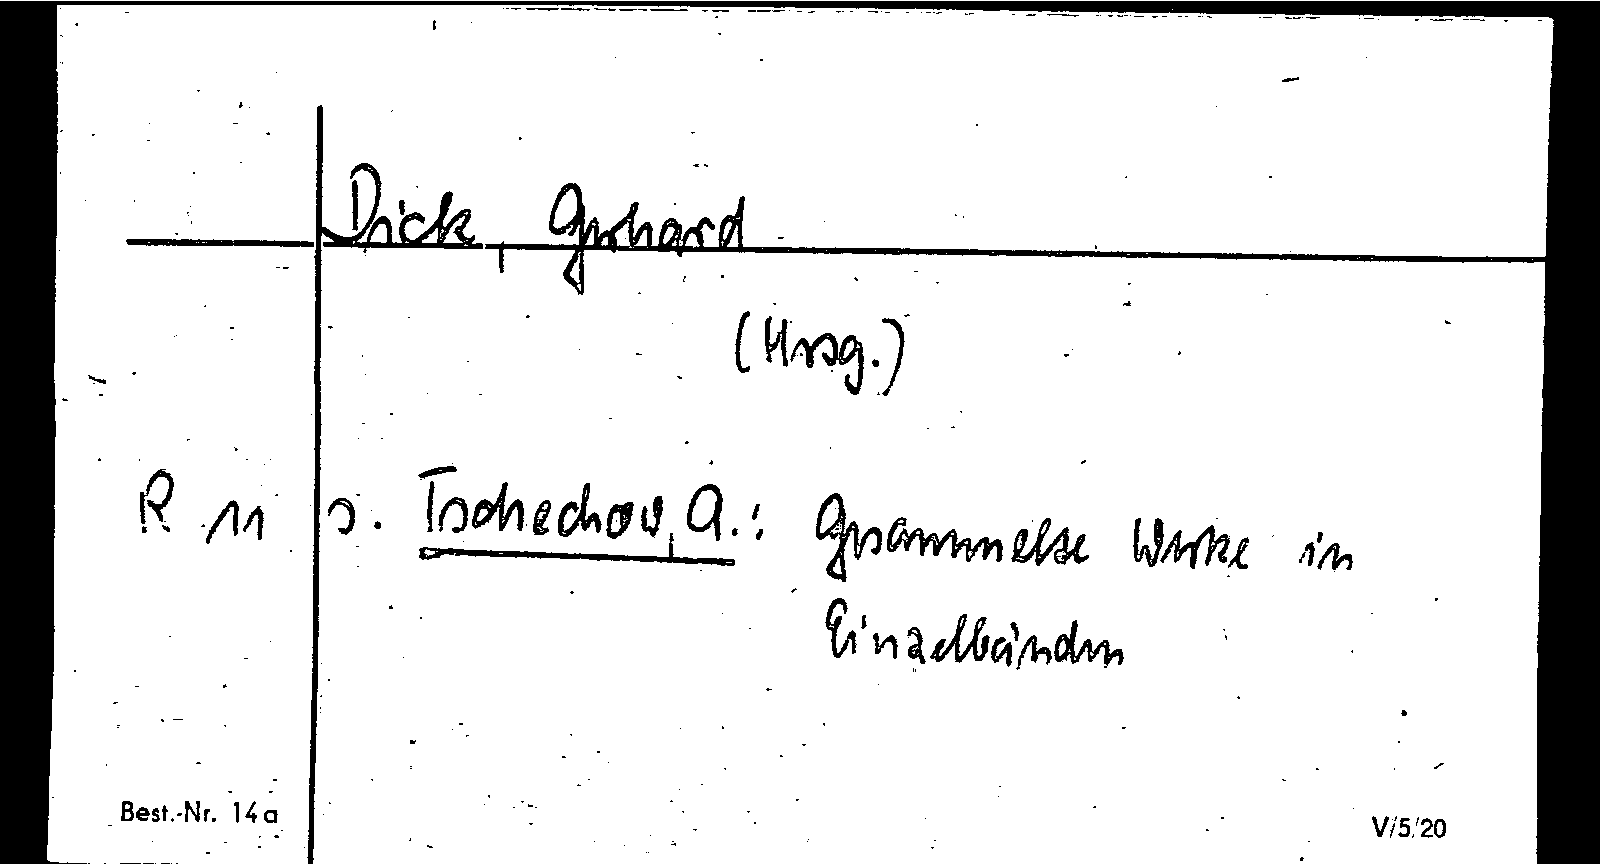 Dick, Gerhard
(Hrsg.)
R 11 s. Tschechow, A.: Gesammelte Werke in
Einzelbänden
Best.-Nr. 14a
V/5/20